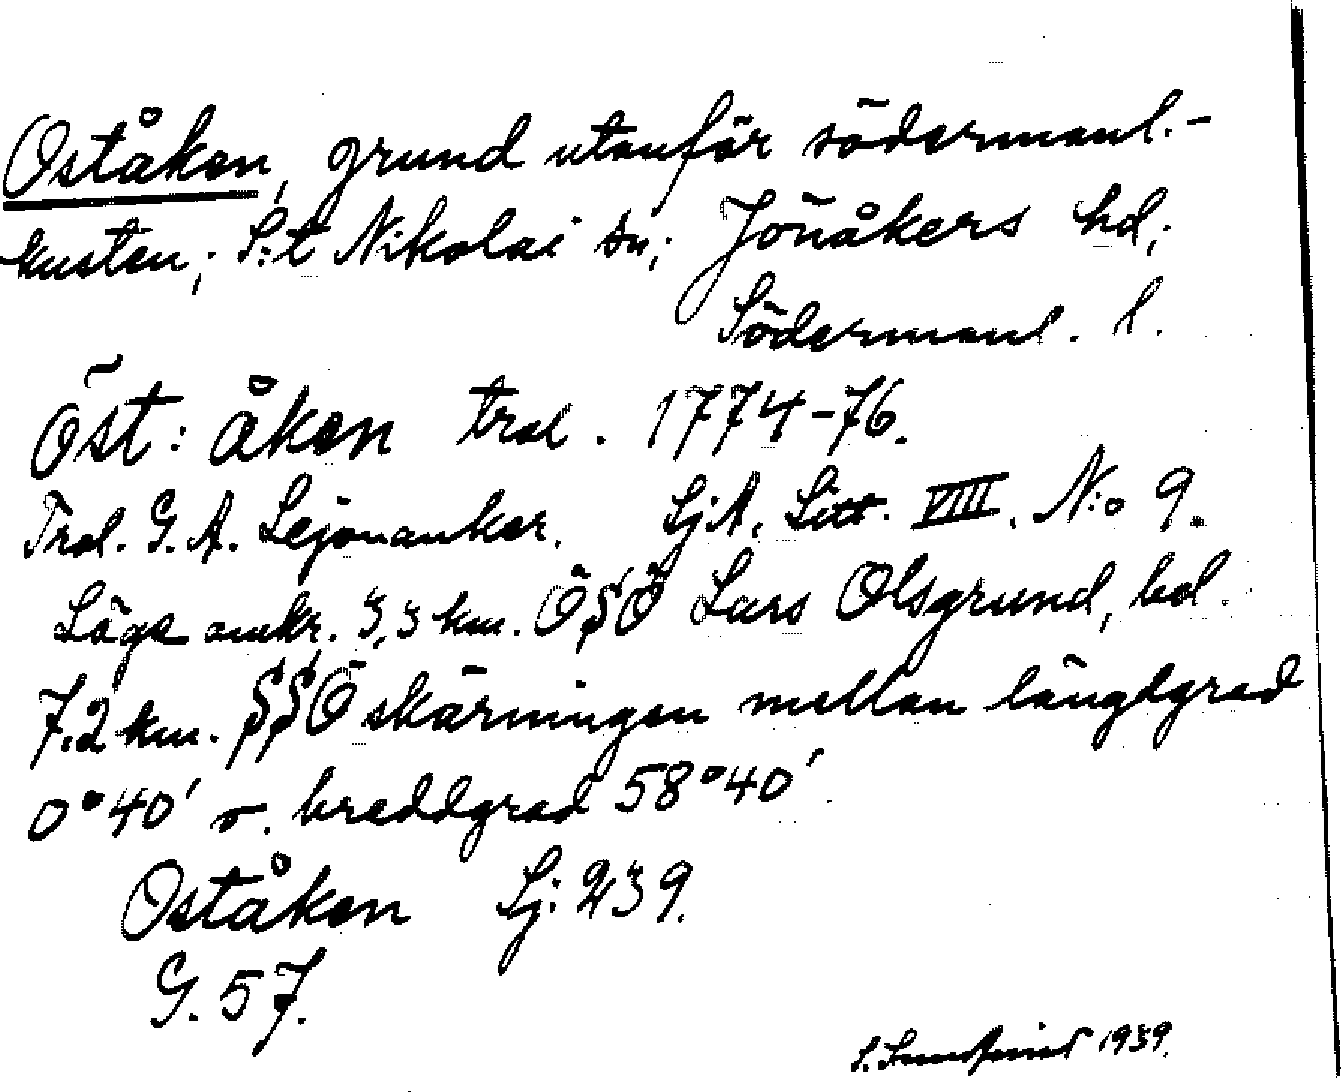 Oståken, grund utanför söderman­l.-
kusten; S:t Nikolai sn; Jönåkers hd;
Södermanl. l.
Öst: åken trol. 1774-76.
Trol. G. A. Lejonanker. SjA. Litt. VIII. N:o 9.
Läge omkr. 3,3 km. ÖSÖ Lars Olsgrund, bel.
7.2 km. SSÖ skärningen mellan längdgrad
0°40' o. breddgrad 58°40'
Oståken Sj: 239.
G. 57.
1939.